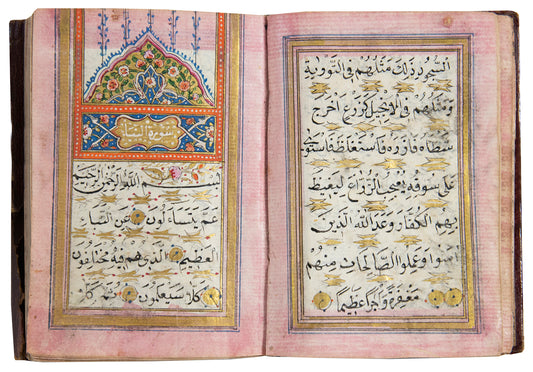 السجود ذلك مثلهم في التورية
ومثلهم في الانجيل كزرع اخرج
شطاه فازره فاستغلظ فاستوى
على سوقه يعجب الزراع ليغيظ
بهم الكفار وعد الله الذين
امنوا وعملوا الصالحات منهم
مغفرة واجرا عظيما
سورة النبأ
بسم الله الرحمن الرحيم
عم يتساءلون عن النبأ
العظيم الذي هم فيه مختلفون
كلا سيعلمون ثم كلا